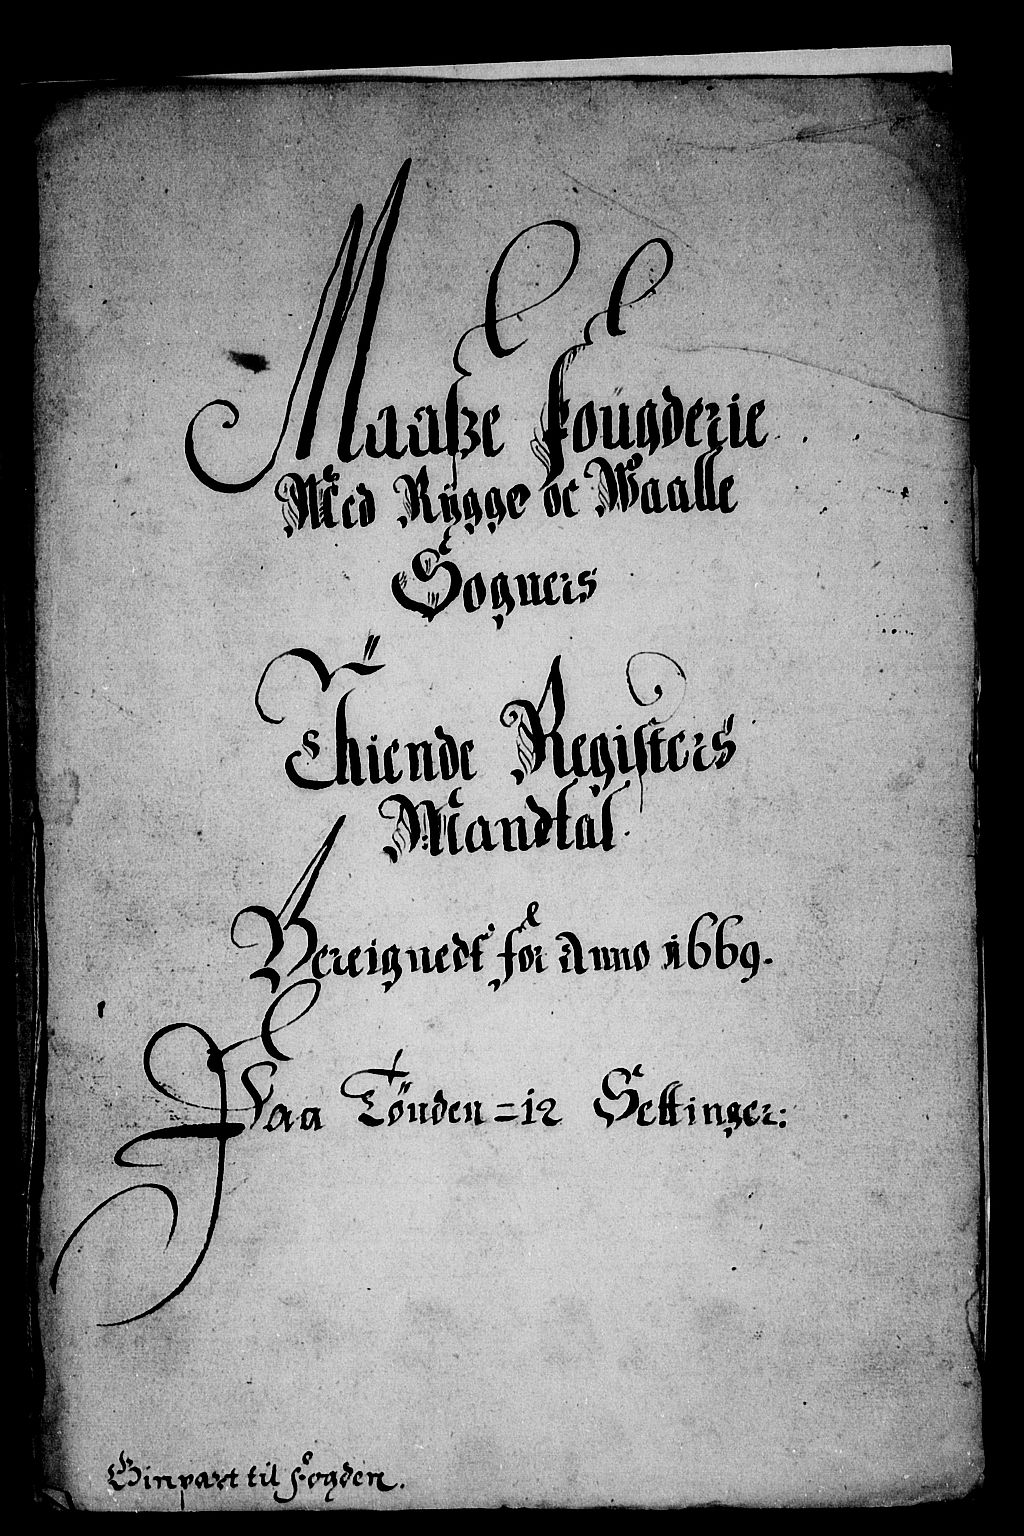 Maasze Fougderie
Med Rÿgge oc Waalle
Sogners
Thiende Registers
Mandtal
Bereignedt for Anno 1669.
Paa Tönden = 12 Settinger:
Ginpart til fogden.